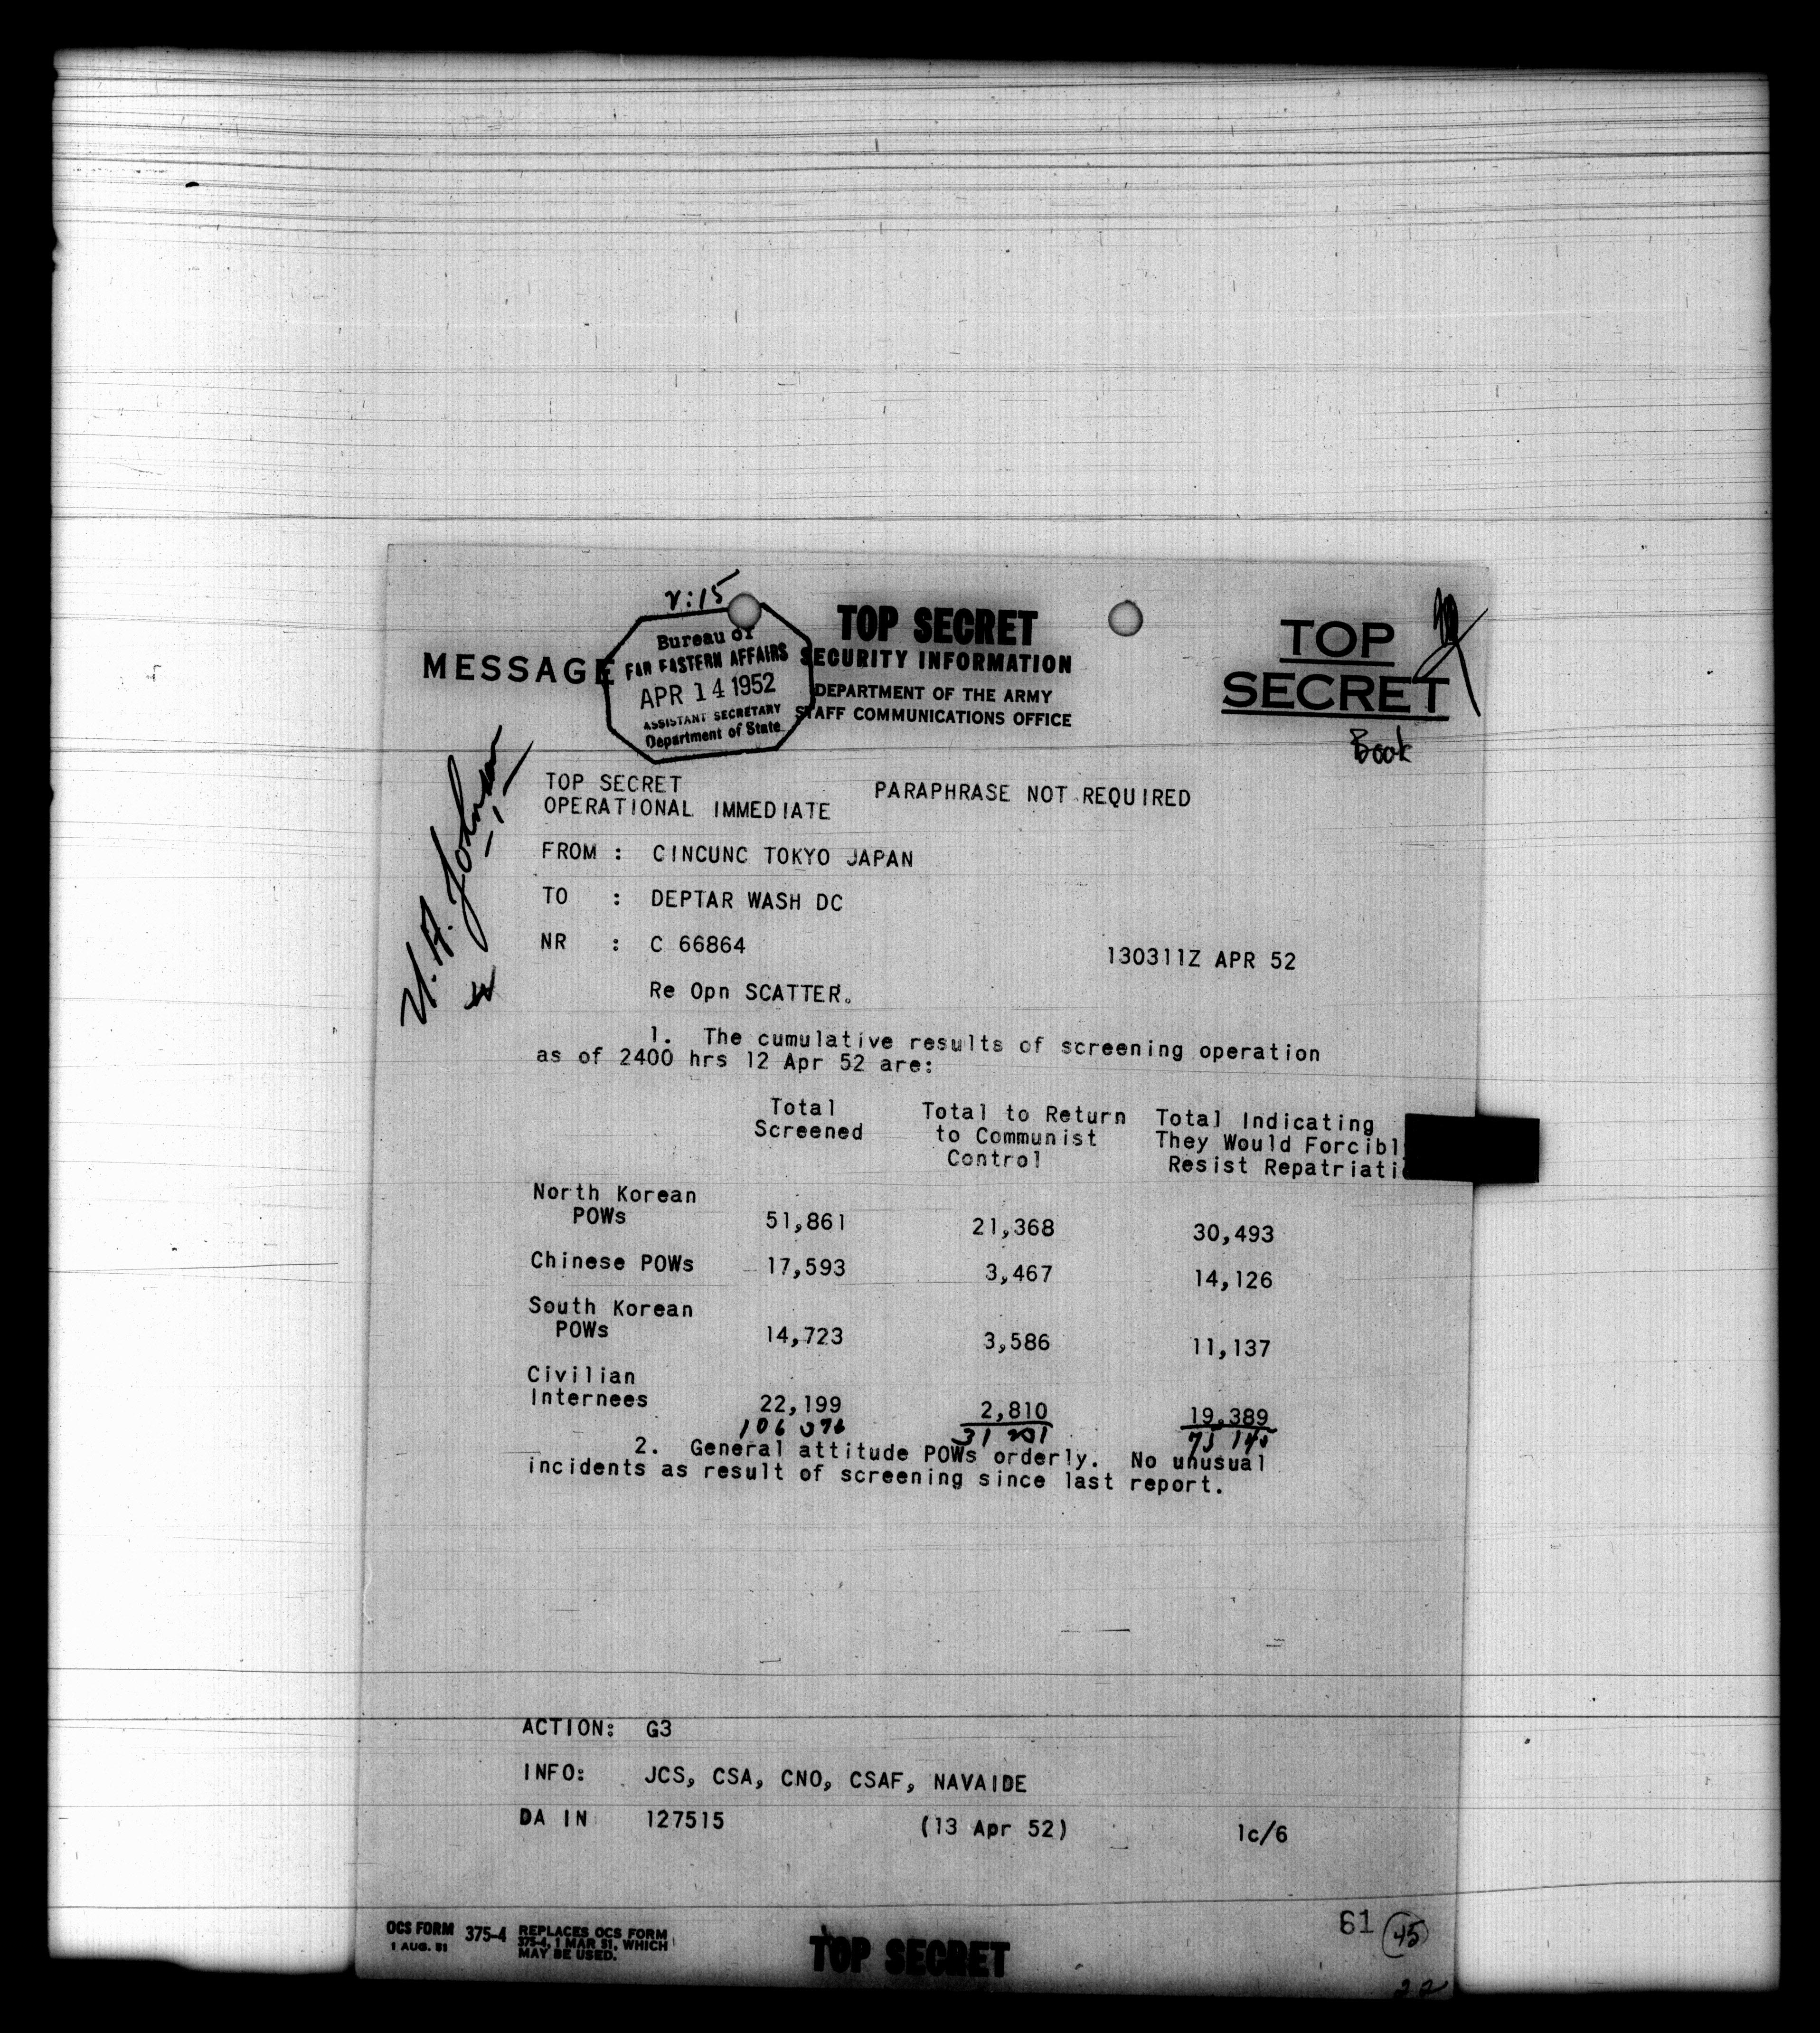 2:15
TOP SECRET
SECURITY INFORMATION
MESSAGE
Bureau of
FAR EASTERN AFFAIRS
APR 14 1952
ASSISTANT SECRETARY
Department of State
DEPARTMENT OF THE ARMY
STAFF COMMUNICATIONS OFFICE
TOP
SECRET
Book
U. A. Johnson
TOP SECRET
OPERATIONAL IMMEDIATE
PARAPHRASE NOT REQUIRED
FROM : CINCUNC TOKYO JAPAN
TO : DEPTAR WASH DC
NR : C 66864 130311Z APR 52
Re Opn SCATTER.
1. The cumulative results of screening operation
as of 2400 hrs 12 Apr 52 are:
Total Total to Return Total Indicating
Screened to Communist They Would Forcibl
Control Resist Repatriati
North Korean
POWs 51,861 21,368 30,493
Chinese POWs 17,593 3,467 14,126
South Korean
POWs 14,723 3,586 11,137
Civilian
Internees 22,199 2,810 19,389
106 376
2. General attitude POWs orderly. No unusual
incidents as result of screening since last report.
ACTION: G3
INFO: JCS, CSA, CNO, CSAF, NAVAIDE
DA IN 127515 (13 Apr 52) 1c/6
OCS FORM 375-4 REPLACES OCS FORM
1 AUG. 51 375-4, 1 MAR 51, WHICH
MAY BE USED.
TOP SECRET
61 45